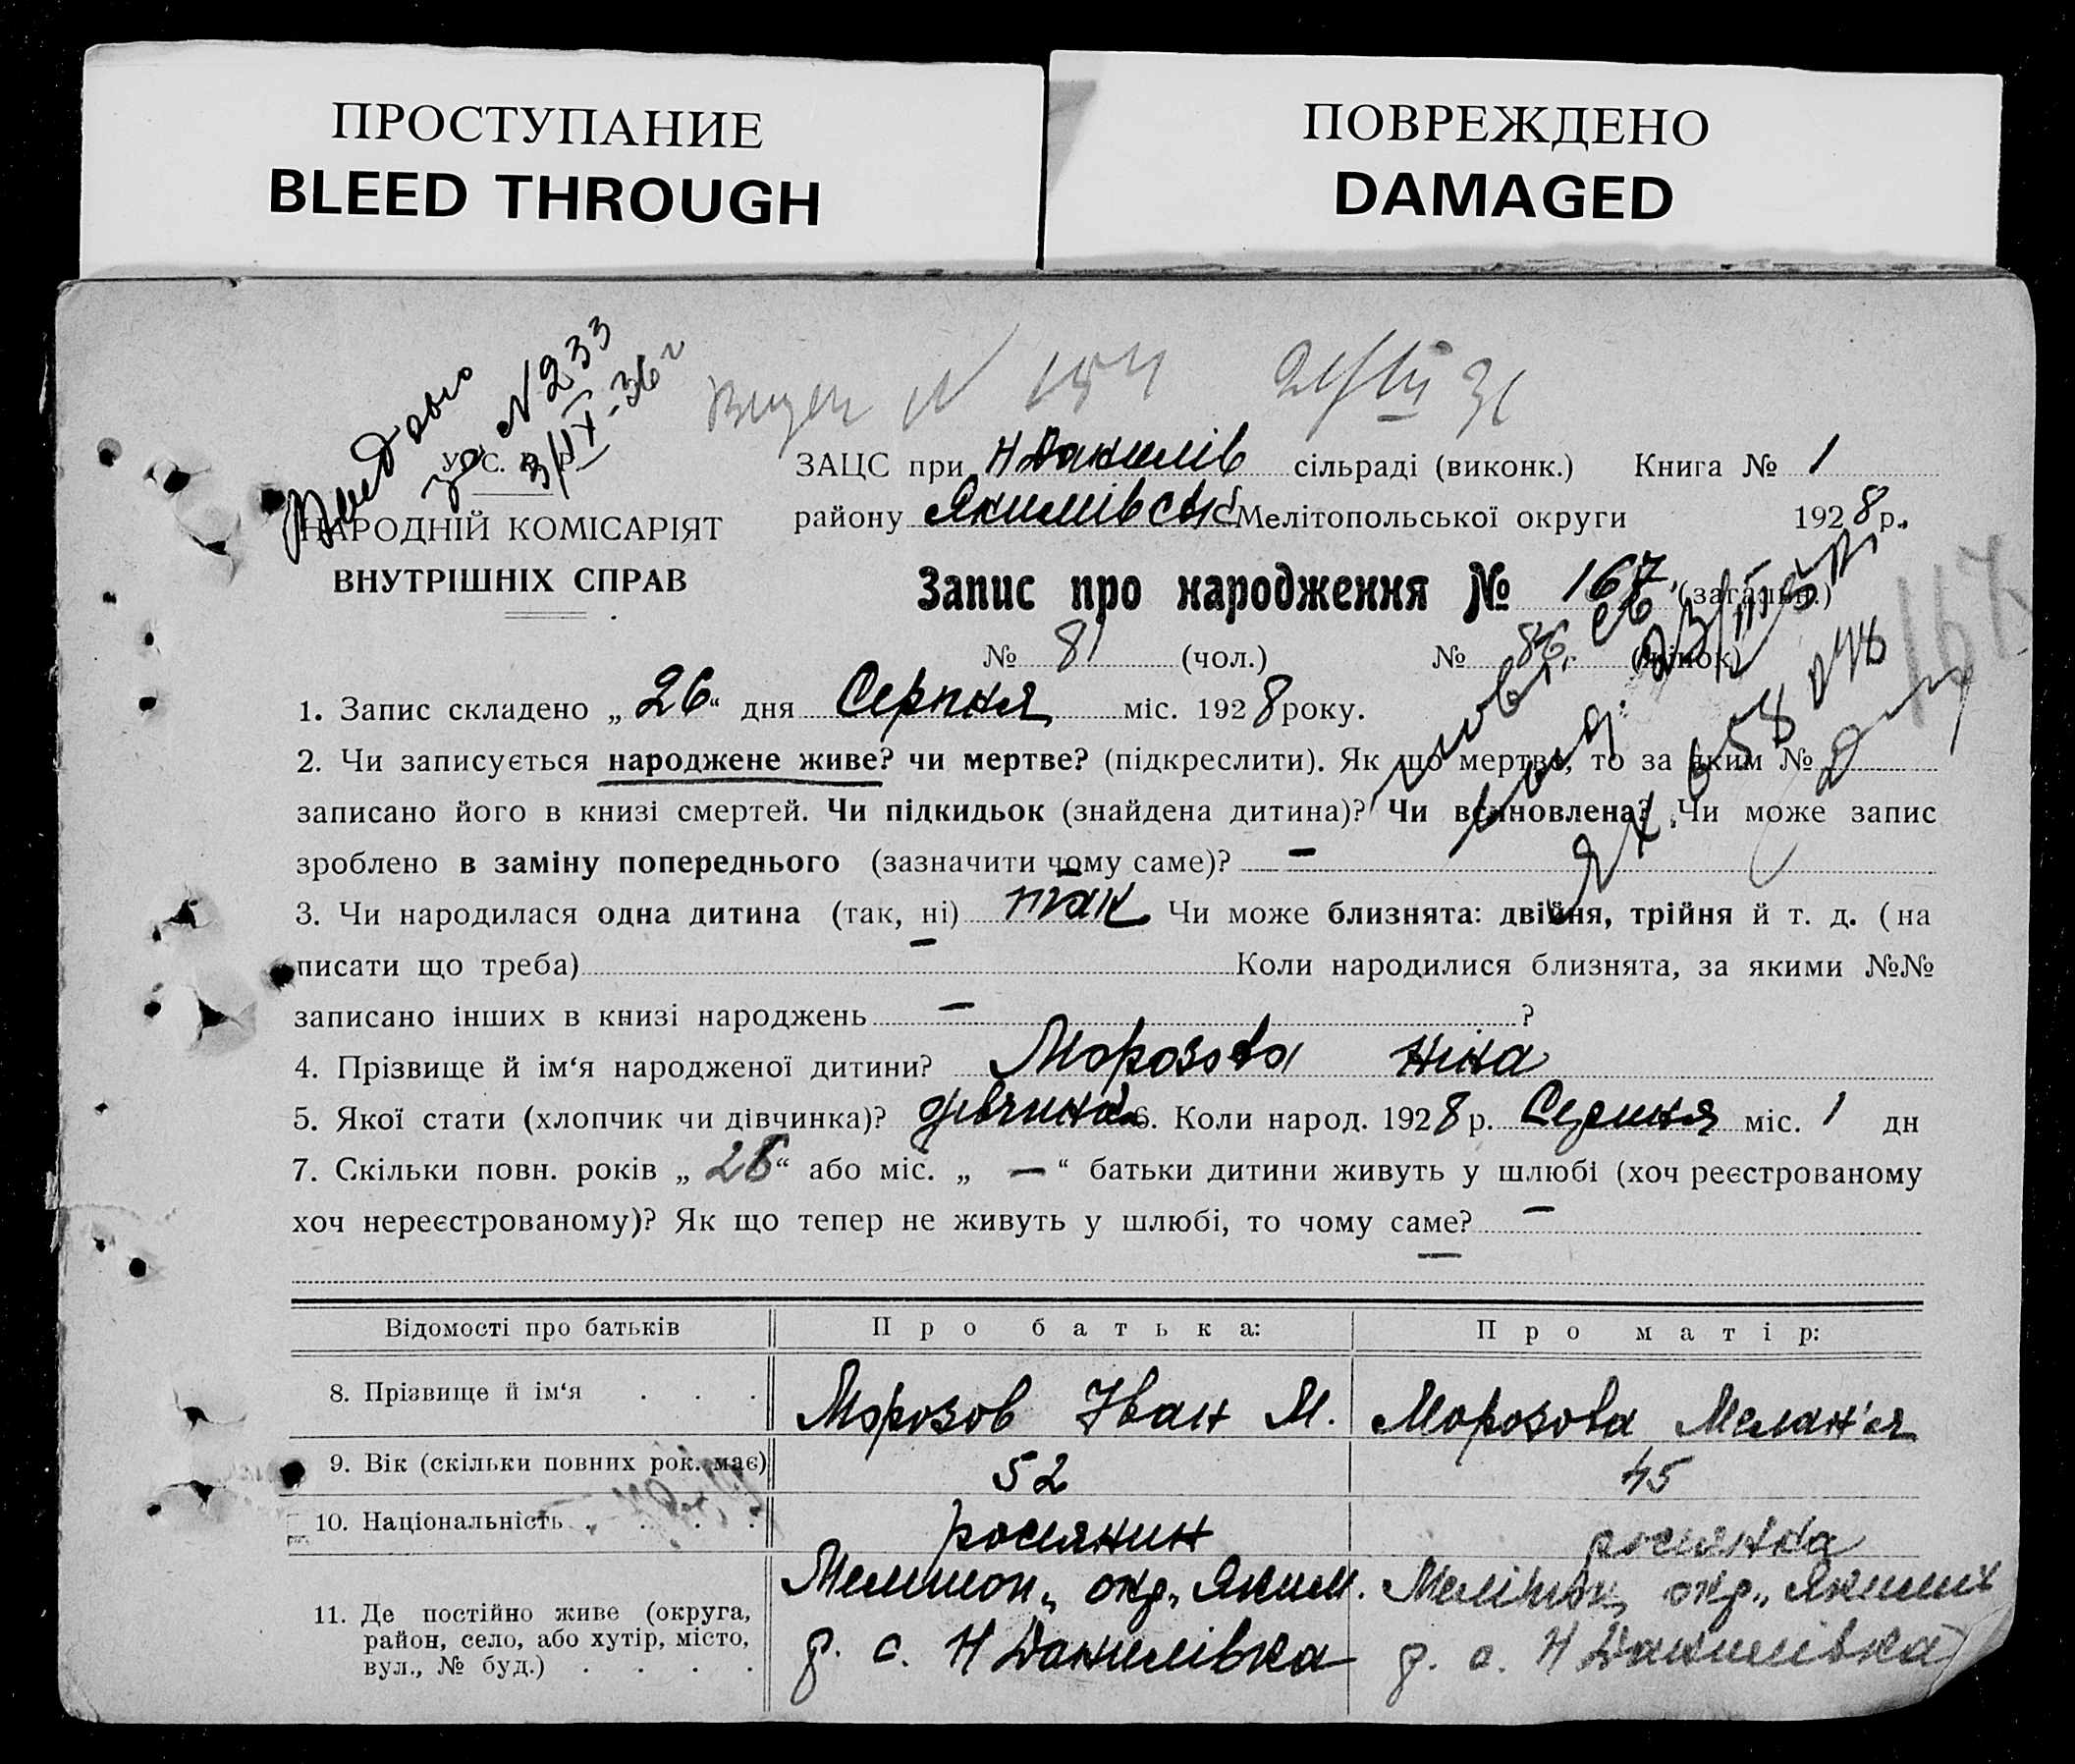 ПРОСТУПАНИЕ
BLEED THROUGH
ПОВРЕЖДЕНО
DAMAGED
за № 233
3/IX-36 г
N 154
У. С. Р. Р.
НАРОДНІЙ КОМІСАРІЯТ
ВНУТРІШНІХ СПРАВ
ЗАЦС при Н Данилів сільраді (виконк.) Книга № 1
району Якимівськ Мелітопольської округи 1928 р.
Запис про народження № 167 (загальн.)
167
№ 81 (чол.) № 86 (жінок)
1. Запис складено „26“ дня Серпня міс. 1928 року.
2. Чи записується народжене живе? чи мертве? (підкреслити). Як що мертве, то за яким №
записано його в книзі смертей. Чи підкидьок (знайдена дитина)? Чи всиновлена? Чи може запис
зроблено в заміну попереднього (зазначити чому саме)? —
3. Чи народилася одна дитина (так, ні) так Чи може близнята: двійня, трійня й т. д. (на
писати що треба) — Коли народилися близнята, за якими №№
записано інших в книзі народжень — ?
4. Прізвище й ім‘я народженої дитини? Морозова Ніна
5. Якої стати (хлопчик чи дівчинка)? дівчина 6. Коли народ. 1928 р. Серпня міс. 1 дн
7. Скільки повн. років „26“ або міс. „—“ батьки дитини живуть у шлюбі (хоч реєстрованому
хоч нереєстрованому)? Як що тепер не живуть у шлюбі, то чому саме? —
Відомості про батьків Про батька: Про матір:
8. Прізвище й ім‘я . . . Морозов Іван М. Морозова Мелан'я
9. Вік (скільки повних рок. має) 52 45
10. Національність . . . . росіянин росіянка
11. Де постійно живе (округа,
район, село, або хутір, місто,
вул., № буд.) . . . .
Мелітоп. окр., Яким.
р. с. Н Данилівка
Мелітоп. окр., Яким
р. с. Н Данилівка